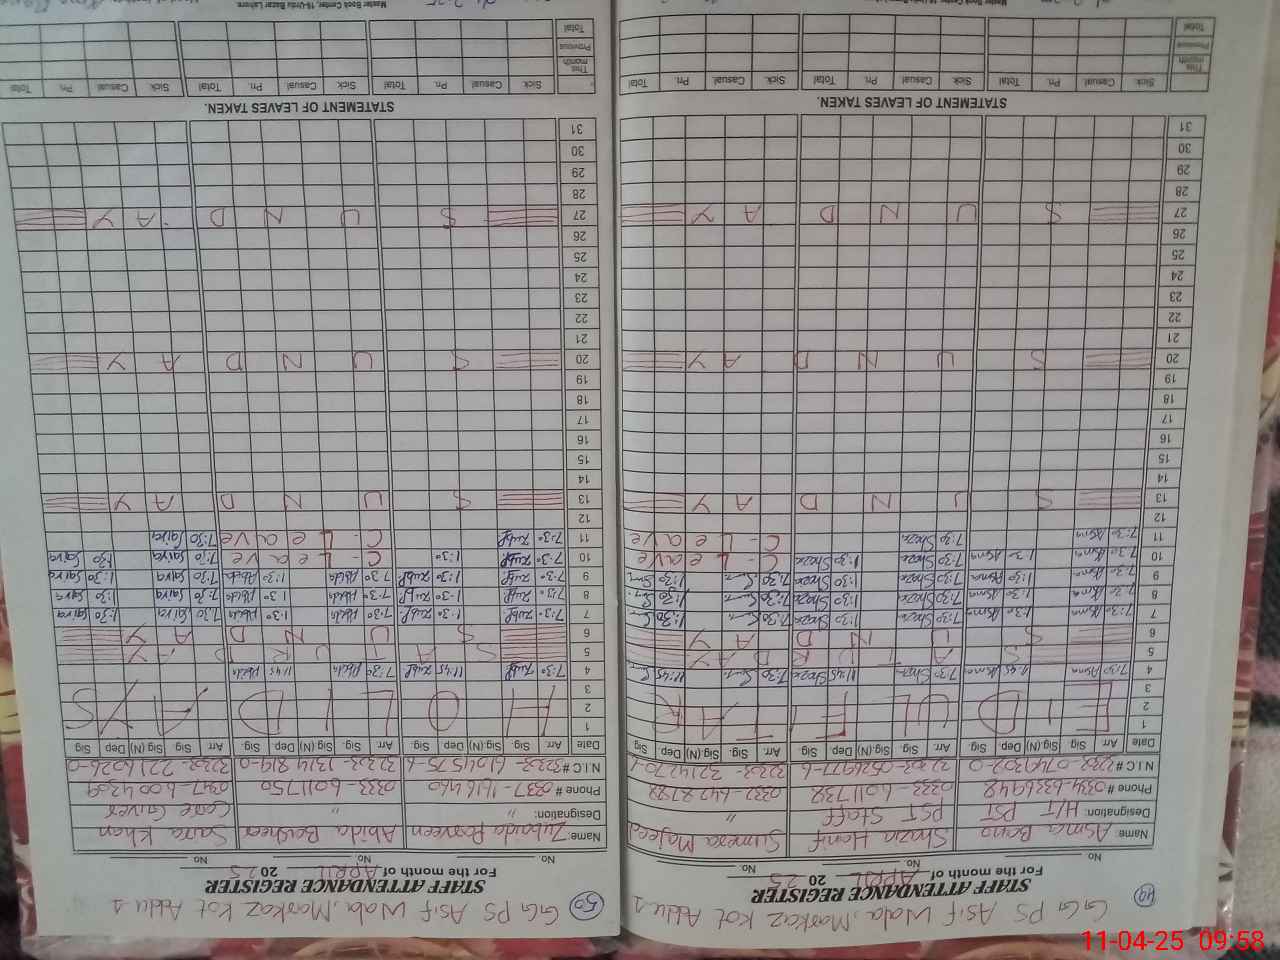 GG PS Asif Wala, Markaz Kot Addu 1
49
STAFF ATTENDANCE REGISTER
For the month of APRIL 2025
No. No. No.
Name: Asma Bano Shazia Hanif Sumera Majeed
Designation: H/T PST PST Staff "
Phone # 0334-6336948 0333-6011738
N.I.C #
Date Arr Sig Sig.(N) Dep Sig Arr Sig. Sig(N) Dep Sig
1
2 EID UL FITAR
3
4 7:30 Asma 11:45 Asma 7:30 Shaza 11:45 Shaza 7:30 11:45
5 SATURDAY
6 SUNDAY
7 7:30 Asma 1:30 Asma 7:30 Shaza 1:30 Shaza 7:30 1:30
8 7:30 Asma 1:30 Asma 7:30 Shaza 1:30 Shaza 7:30 1:30
9 7:30 Asma 1:30 Asma 7:30 Shaza 1:30 Shaza 7:30 1:30
10 7:30 Asma 1:30 Asma 7:30 Shaza 1:30 Shaza C-Leave
11 7:30 Asma 7:30 Shaza C-Leave
12
13 SUNDAY
14
15
16
17
18
19
20 SUNDAY
21
22
23
24
25
26
27 SUNDAY
28
29
30
31
STATEMENT OF LEAVES TAKEN.
Sick Casual Pri. Total Sick Casual Pri. Total Sick. Casual Pri. Total
This month
Previous
Total
GG PS Asif Wala, Markaz Kot Addu 1
50
STAFF ATTENDANCE REGISTER
For the month of APRIL 2025
No. No. No.
Name: Zubaida Parveen Abida Basheer Saira Khan
Designation: " " Care Giver
Phone # 0337-1616460 0333-6011750 0347-6004309
N.I.C #
Date Arr Sig Sig.(N) Dep Sig Arr Sig Sig(N) Dep Sig Arr Sig Sig(N) Dep Sig
1
2 HOLIDAYS
3
4 7:30 Zubi 11:45 Zubi 7:30 Abida 11:45 Abida
5 SATURDAY
6 SUNDAY
7 7:30 Zubi 1:30 Zubi 7:30 Abida 1:30 Abida 7:30 Saira 1:30 Saira
8 7:30 Zubi 1:30 Zubi 7:30 Abida 1:30 Abida 7:30 Saira 1:30 Saira
9 7:30 Zubi 1:30 Zubi 7:30 Abida 1:30 Abida 7:30 Saira 1:30 Saira
10 7:30 Zubi 1:30 C-Leave 7:30 Saira 1:30 Saira
11 7:30 Zubi C-Leave 7:30 Saira
12
13 SUNDAY
14
15
16
17
18
19
20 SUNDAY
21
22
23
24
25
26
27 SUNDAY
28
29
30
31
STATEMENT OF LEAVES TAKEN.
Sick Casual Pri. Total Sick Casual Pri. Total Sick Casual Pri. Total
This month
Previous
Total
Master Book Center, 16-Urdu Bazar Lahore.
11-04-25 09:58